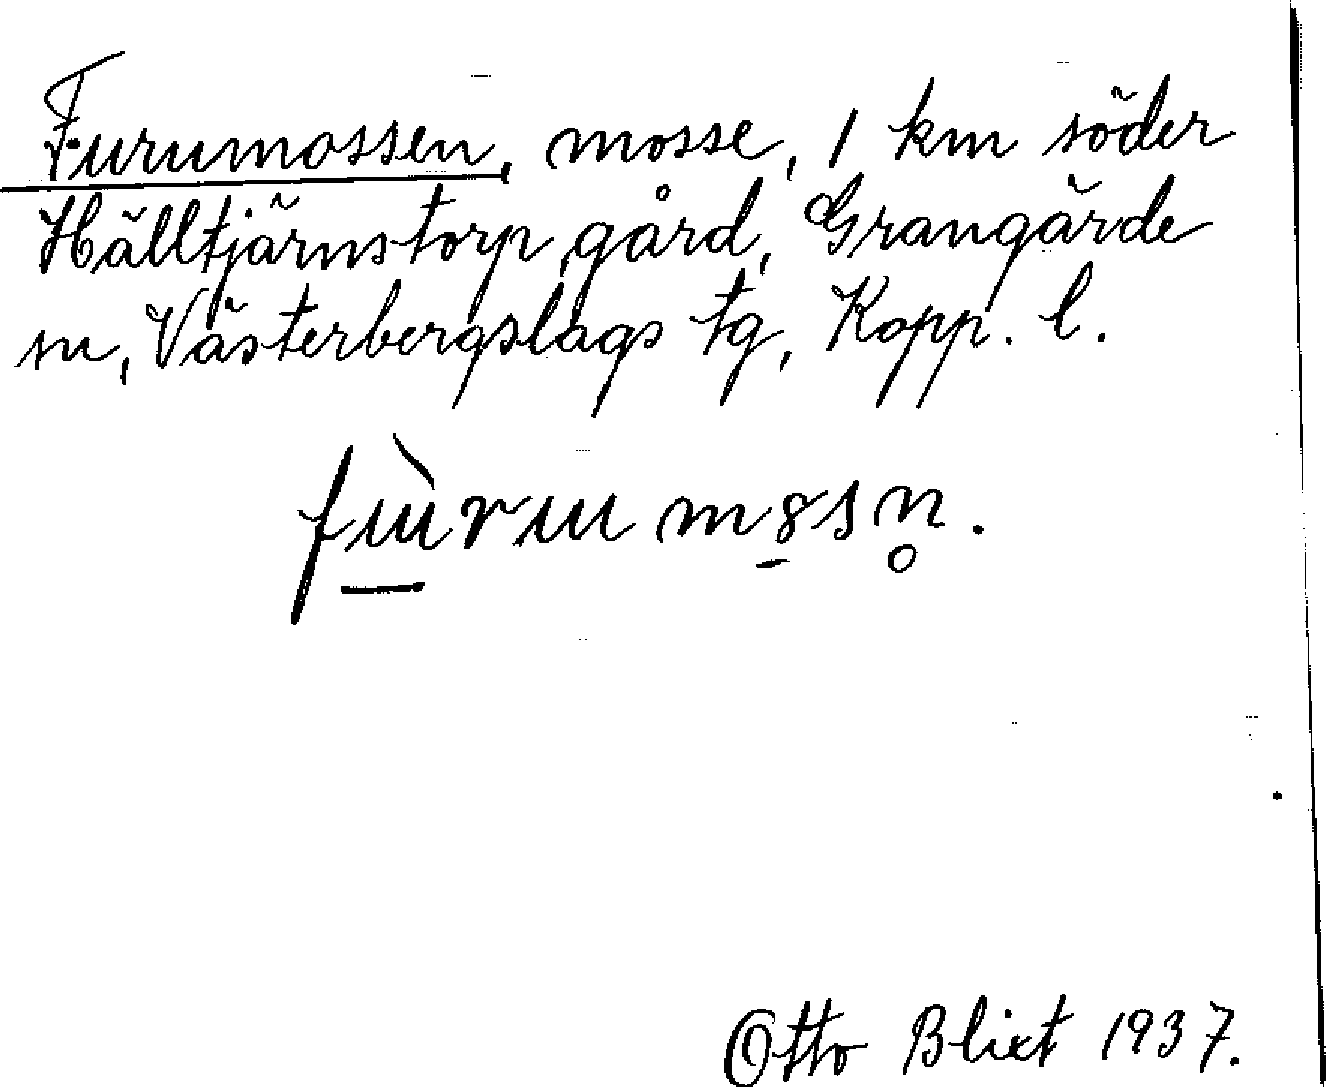 Furumossen, mosse, 1 km söder
Hälltjärnstorp, gård, Grangärde
sn, Västerbergslags tg, Kopp. l.
fùrumȣsn̥.
Otto Blixt 1937.